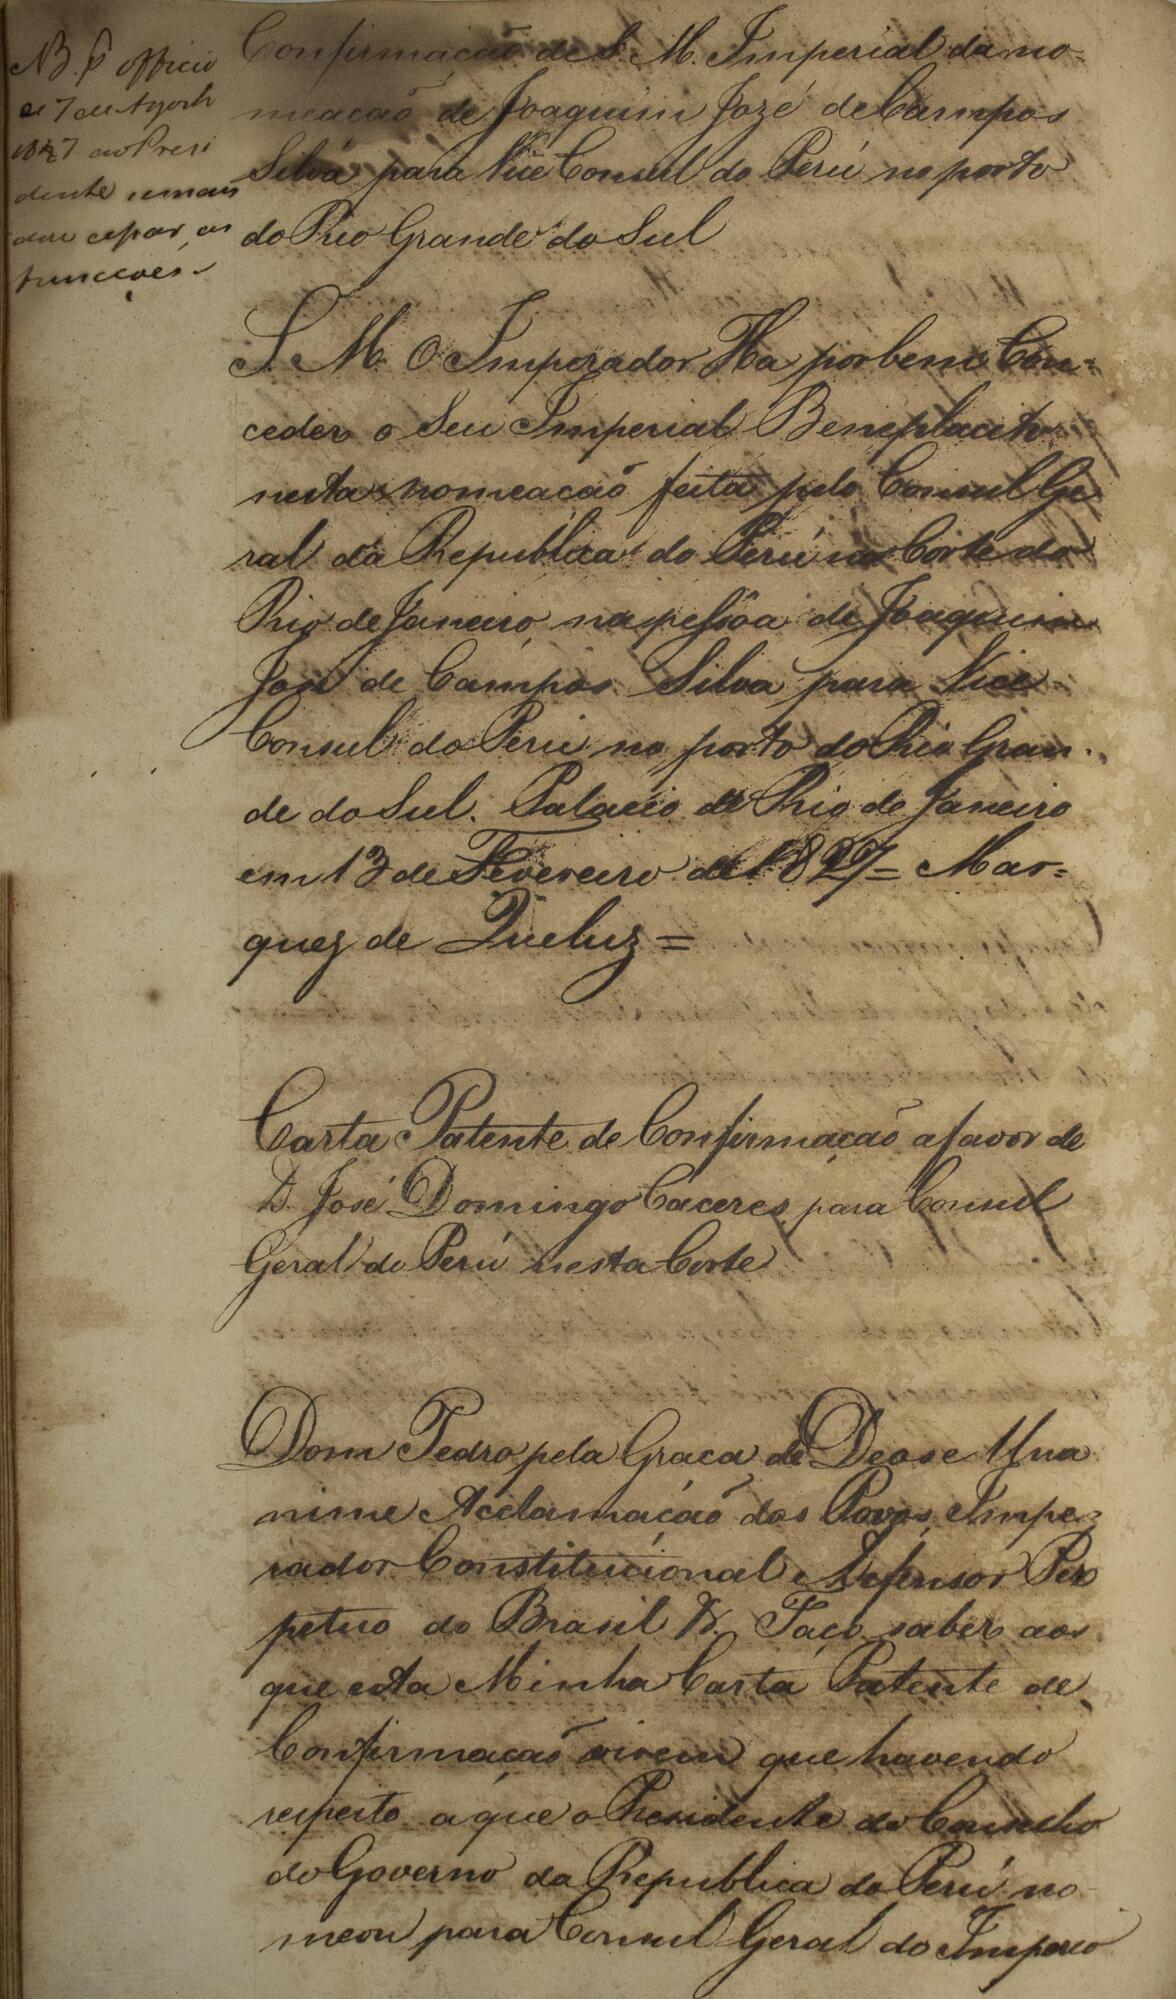 NB. P. officio
de 7 de Agosto
1827 ao Presi
dente se man
dou cessar as
funcções.
Confirmação de S. M. Imperial da no-
meação de Joaquim Jozé de Campos
Silva para Vice Consul do Perú no porto
do Rio Grande do Sul
S. M. O Imperador Ha por bem Con-
ceder o Seu Imperial Beneplacito
nesta nomeação feita pelo Consul Ge
ral da Republica do Perú na Corte do
Rio de Janeiro na pessôa de Joaquim
José de Campos Silva para Vice
Consul do Perú no porto do Rio Gran-
de do Sul. Palacio do Rio de Janeiro
em 13 de Fevereiro de 1827= Mar=
quez de Queluz =
Carta Patente de Confirmação a favor de
D. José Domingo Caceres para Consul
Geral do Perú nesta Corte
Dom Pedro pela Graça de Deos e Una
nime Acclamação dos Povos, Impe
rador Constitucional e Defensor Per
petuo do Brasil &. Faço saber aos
que esta Minha Carta Patente de
Confirmação virem que havendo
respeito a que o Presidente do Conselho
do Governo da Republica do Perú no-
meou para Consul Geral do Imperio